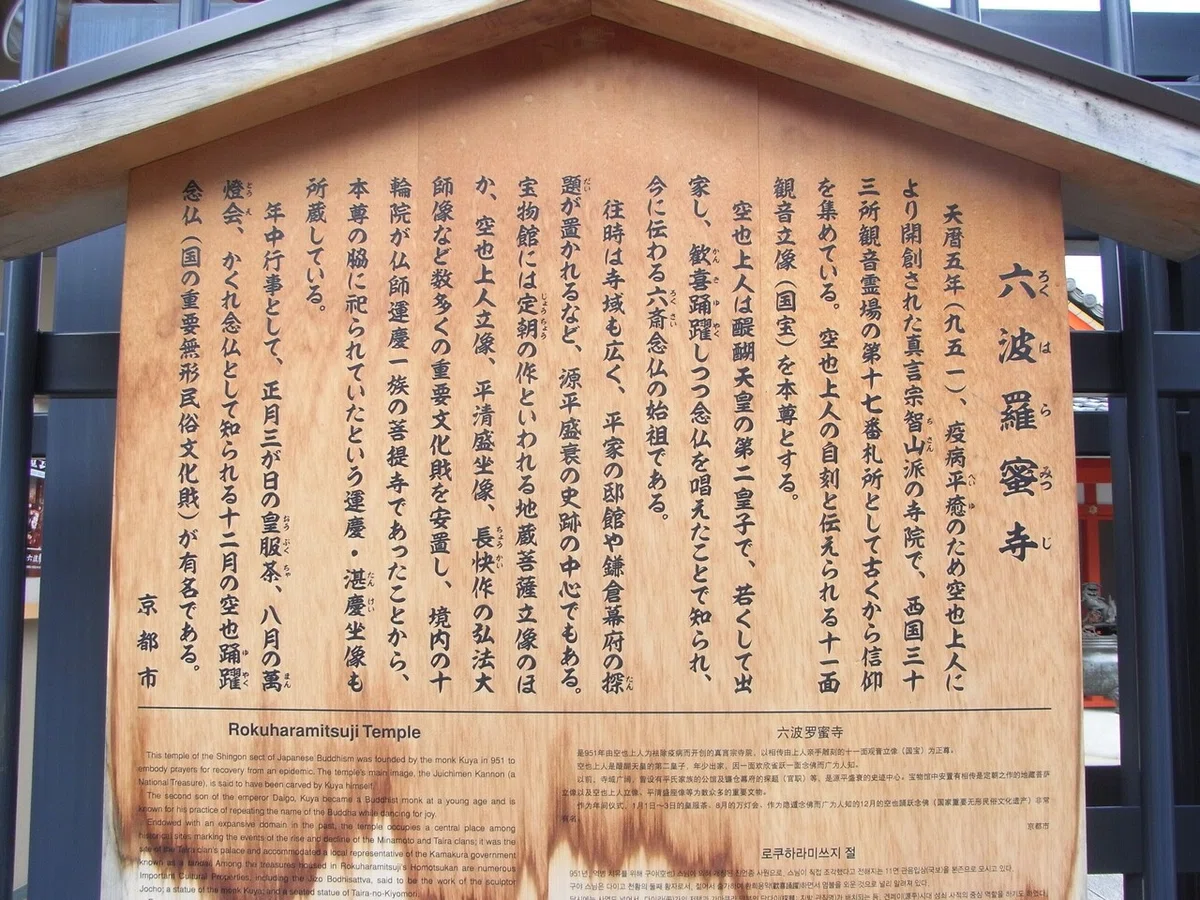 六波羅蜜寺
ろくはらみつじ
天暦五年（九五一）、疫病平癒のため空也上人に
へいゆ
より開創された真言宗智山派の寺院で、西国三十
ちさん
三所観音霊場の第十七番札所として古くから信仰
を集めている。空也上人の自刻と伝えられる十一面
観音立像（国宝）を本尊とする。
空也上人は醍醐天皇の第二皇子で、若くして出
家し、歓喜踊躍しつつ念仏を唱えたことで知られ、
かんきゆやく
今に伝わる六斎念仏の始祖である。
ろくさい
往時は寺域も広く、平家の邸館や鎌倉幕府の探
たん
題が置かれるなど、源平盛衰の史跡の中心でもある。
だい
宝物館には定朝の作といわれる地蔵菩薩立像のほ
じょうちょう
か、空也上人立像、平清盛坐像、長快作の弘法大
ちょうかい
師像など数多くの重要文化財を安置し、境内の十
輪院が仏師運慶一族の菩提寺であったことから、
本尊の脇に祀られていたという運慶・湛慶坐像も
たんけい
所蔵している。
年中行事として、正月三が日の皇服茶、八月の萬
おうぶくちゃ
まん
燈会、かくれ念仏として知られる十二月の空也踊躍
とうえ
ゆやく
念仏（国の重要無形民俗文化財）が有名である。
京都市
Rokuharamitsuji Temple
This temple of the Shingon sect of Japanese Buddhism was founded by the monk Kuya in 951 to
embody prayers for recovery from an epidemic. The temple's main image, the Juichimen Kannon (a
National Treasure), is said to have been carved by Kuya himself.
The second son of the emperor Daigo, Kuya became a Buddhist monk at a young age and is
known for his practice of repeating the name of the Buddha while dancing for joy.
Endowed with an expansive domain in the past, the temple occupies a central place among
historical sites marking the events of the rise and decline of the Minamoto and Taira clans; it was the
site of the Taira clan's palace and accommodated a local representative of the Kamakura government
known as a tandai. Among the treasures housed in Rokuharamitsuji's Homotsukan are numerous
Important Cultural Properties, including the Jizo Bodhisattva, said to be the work of the sculptor
Jocho; a statue of the monk Kuya; and a seated statue of Taira-no-Kiyomori.
六波罗蜜寺
是951年由空也上人为祛除疫病而开创的真言宗寺院。以相传由上人亲手雕刻的十一面观音立像（国宝）为正尊。
空也上人是醍醐天皇的第二皇子，年少出家，因一面欢欣雀跃一面念佛而广为人知。
以前，寺域广阔，曾设有平氏家族的公馆及镰仓幕府的探题（官职）等，是源平盛衰的史迹中心。宝物馆中安置有相传是定朝之作的地藏菩萨
立像以及空也上人立像、平清盛座像等为数众多的重要文物。
作为年间仪式，1月1日~3日的皇服茶、8月的万灯会、作为隐遁念佛而广为人知的12月的空也踊跃念佛（国家重要无形民俗文化遗产）非常
有名。
京都市
로쿠하라미쓰지 절